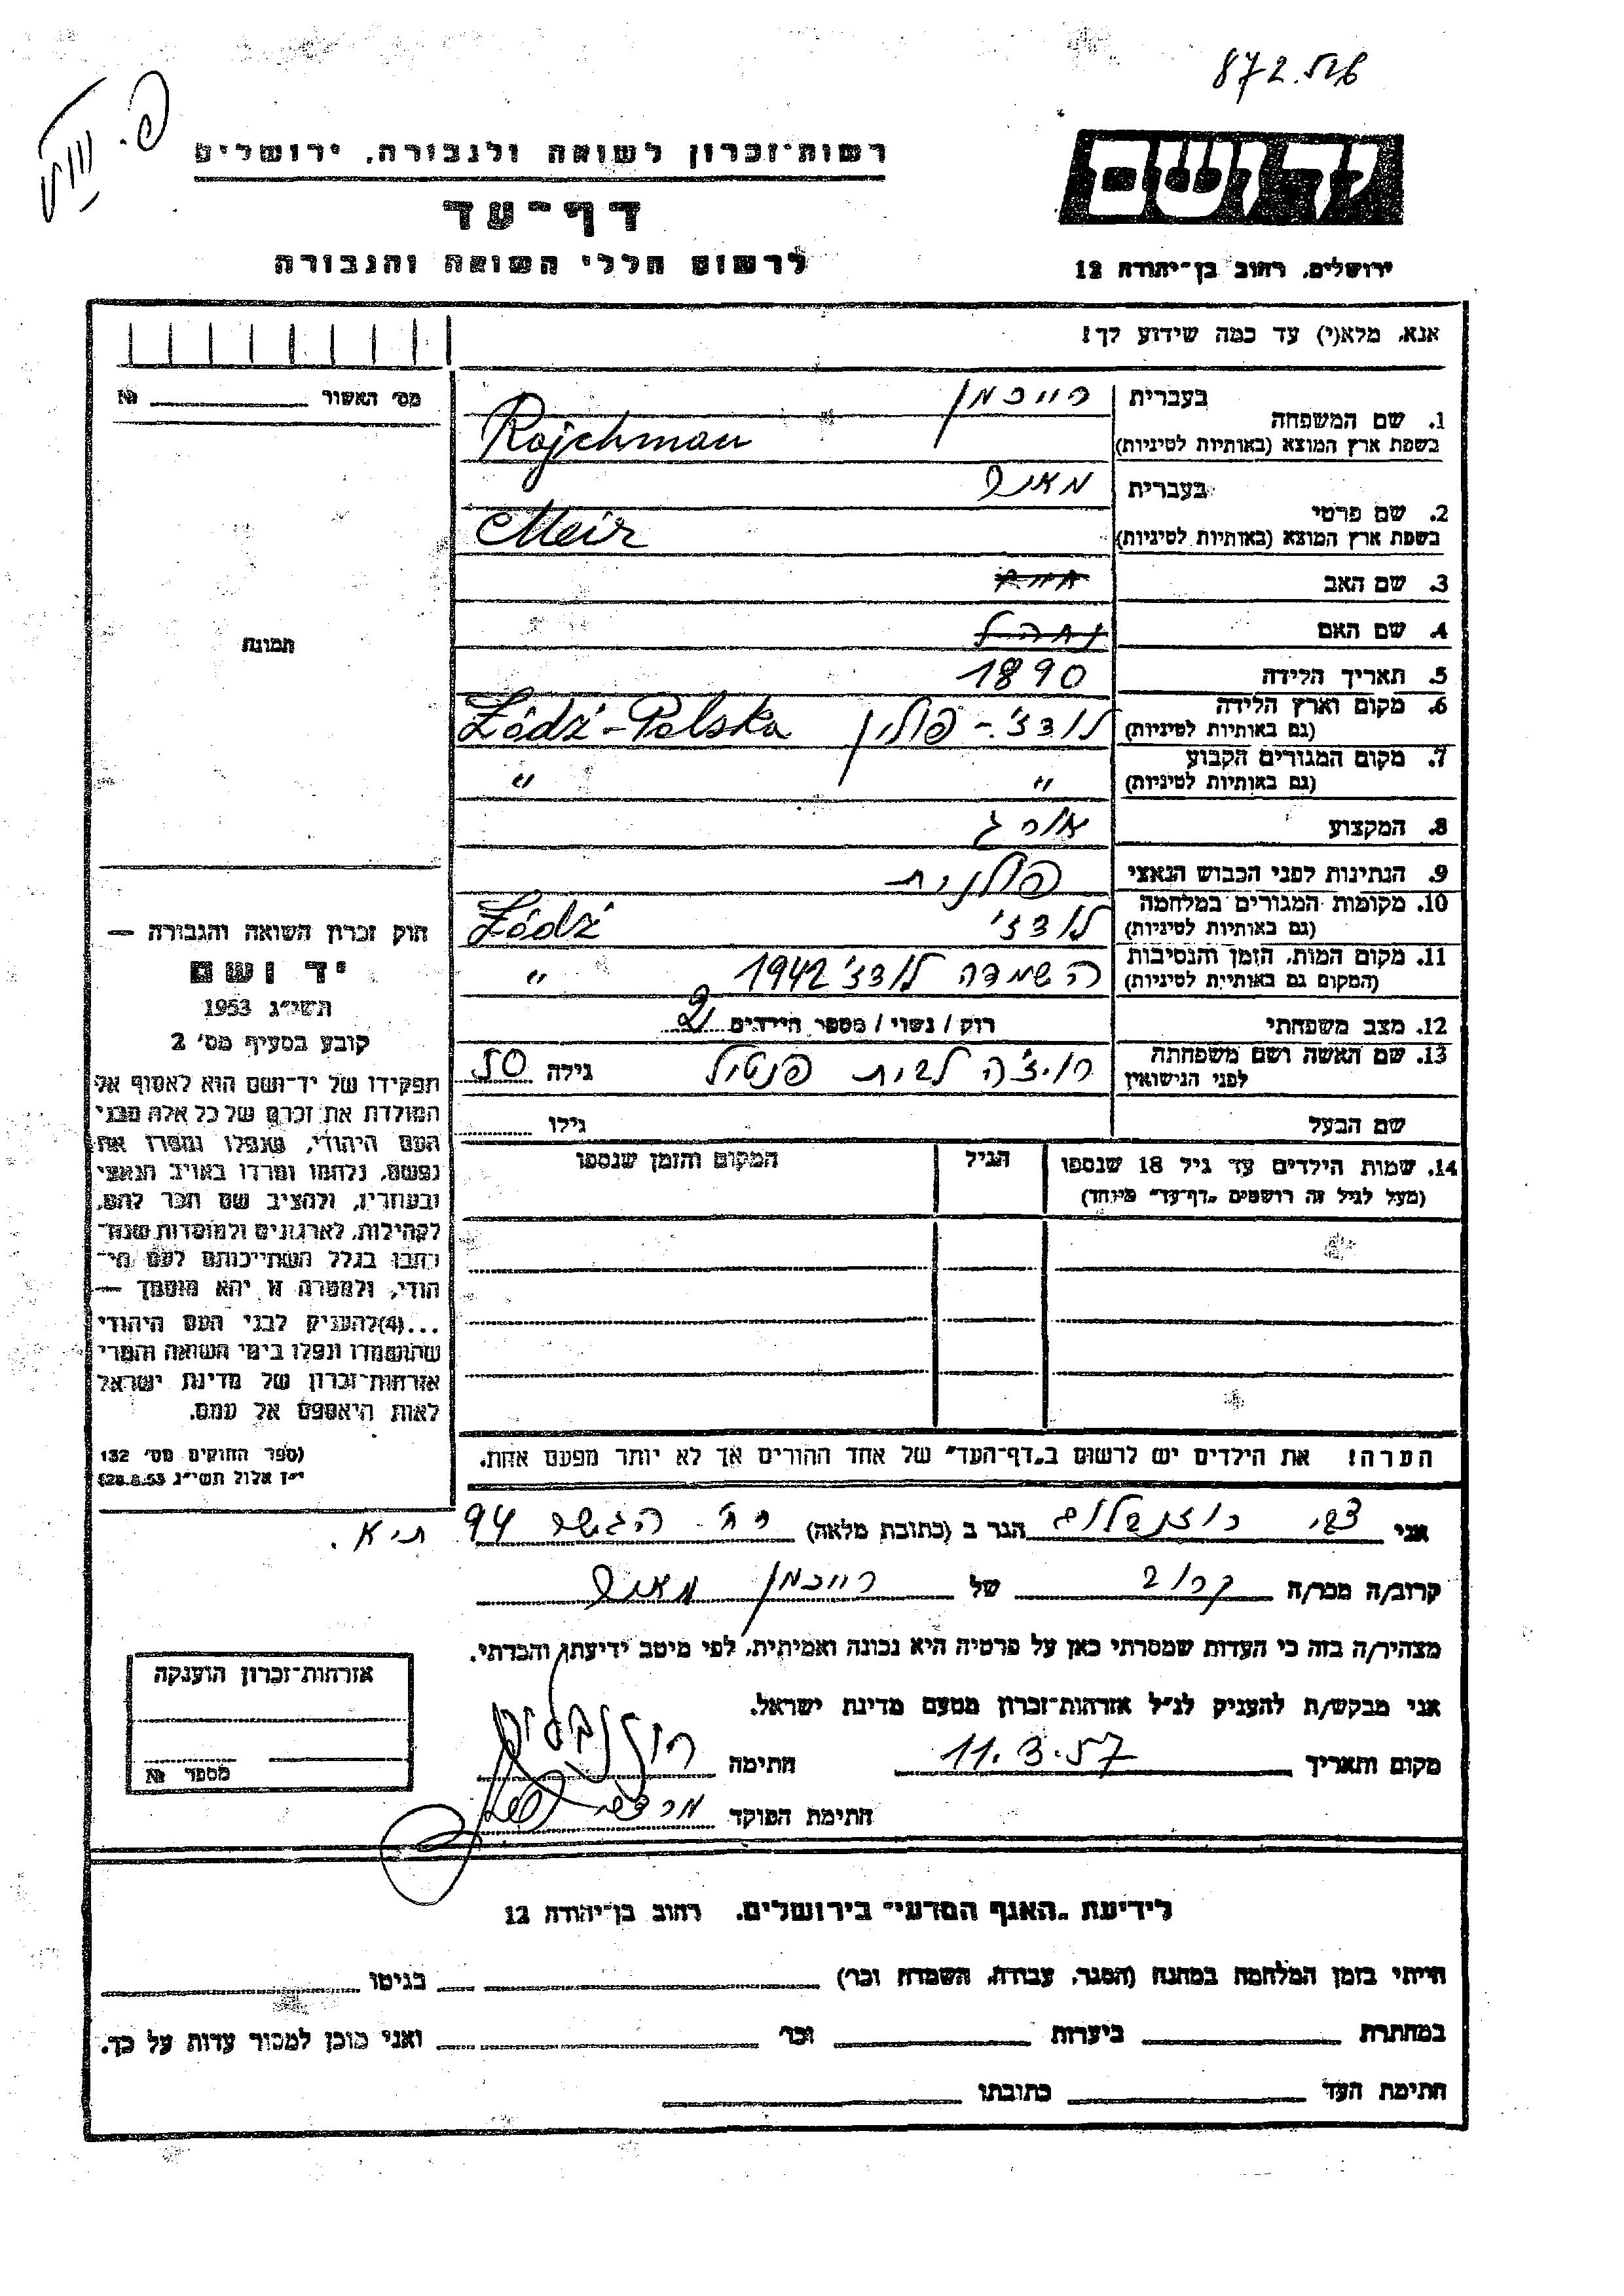 872.516
פ. ווייט
רשות-זכרון לשואה ולגבורה, ירושלים
דף-עד
לרשום חללי השואה והגבורה
יד ושם
ירושלים, רחוב בן-יהודה 12
אנא, מלא(י) עד כמה שידוע לך!
מס' האשור № 
1. שם המשפחה בעברית רייכמן
בשפת ארץ המוצא (באותיות לטיניות) Rajchman
2. שם פרטי בעברית מאיר
בשפת ארץ המוצא (באותיות לטיניות) Meir
3. שם האב
4. שם האם
5. תאריך הלידה 1890
6. מקום וארץ הלידה (גם באותיות לטיניות) לודז' - פולין Łódź-Polska
7. מקום המגורים הקבוע (גם באותיות לטיניות) " "
8. המקצוע אורג
9. הנתינות לפני הכבוש הנאצי פולנית
10. מקומות המגורים במלחמה (גם באותיות לטיניות) לודז' Łódź
11. מקום המות, הזמן והנסיבות (המקום גם באותיות לטיניות) השמדה לודז' 1942 "
12. מצב משפחתי רוק / נשוי / מספר הילדים 2
13. שם האשה ושם משפחתה לפני הנישואין רויצ'ה לבית פנטיל גילה 50
שם הבעל גילו
14. שמות הילדים עד גיל 18 שנספו (מעל לגיל זה רושמים "דף-עד" מיוחד) הגיל המקום והזמן שנספו
הערה! את הילדים יש לרשום ב"דף-העד" של אחד ההורים אך לא יותר מפעם אחת.
תמונה
חוק זכרון השואה והגבורה —
יד ושם
תשי"ג 1953
קובע בסעיף מס' 2
תפקידו של יד-ושם הוא לאסוף אל
המולדת את זכרם של כל אלה מבני
העם היהודי, שנפלו ומסרו את
נפשם, נלחמו ומרדו באויב הנאצי
ובעוזריו, ולהציב שם וזכר להם,
לקהילות, לארגונים ולמוסדות שנח-
רבו בגלל השתייכותם לעם הי-
הודי, ולמטרה זו יהא מוסמך —
...(4)להעניק לבני העם היהודי
שהושמדו ונפלו בימי השואה והמרי
אזרחות-זכרון של מדינת ישראל
לאות היאספם אל עמם.
(ספר החוקים מס' 132
י"ז אלול תשי"ג 28.8.53)
אני צבי רוזנבלום הגר ב (כתובת מלאה) רח' הגושר 94 ת"א.
קרוב/ה מכר/ה קרוב של רייכמן מאיר
מצהיר/ה בזה כי העדות שמסרתי כאן על פרטיה היא נכונה ואמיתית, לפי מיטב ידיעתי והכרתי.
אני מבקש/ת להעניק לנ"ל אזרחות-זכרון מטעם מדינת ישראל.
מקום ותאריך 11.3.57 חתימה רוזנבלום
חתימת הפוקד
אזרחות-זכרון הוענקה
מספר №
לידיעת "האגף המדעי" בירושלים, רחוב בן-יהודה 12
הייתי בזמן המלחמה במחנה (הסגר, עבודה, השמדה וכו') בגיטו
במחתרת ביערות וכו' ואני מוכן למסור עדות על כך.
חתימת העד כתובתו